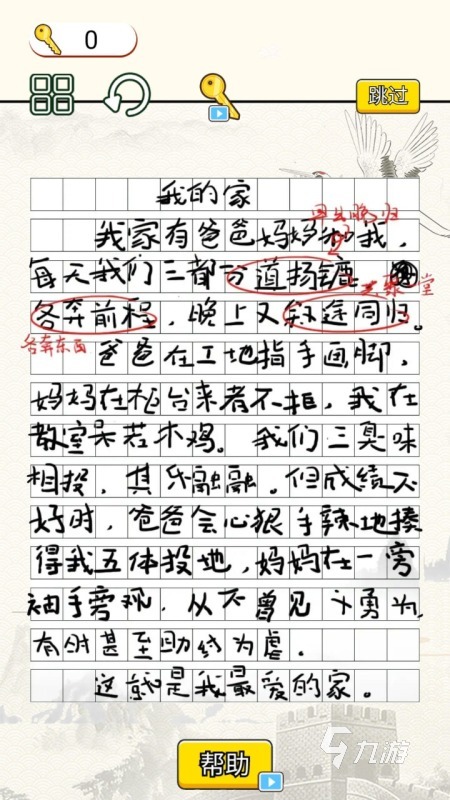 0
跳过
我的家
早出晚归
我家有爸爸妈妈和我，
每天我们三都分道扬镳
聚一堂
各奔前程，晚上又殊途同归。
各奔东西
爸爸在工地指手画脚，
妈妈在柜台来者不拒，我在
教室呆若木鸡。我们三臭味
相投，其乐融融。但成绩不
好时，爸爸会心狠手辣地揍
得我五体投地，妈妈在一旁
袖手旁观，从不曾见 勇为，
有时甚至助纣为虐。
这就是我最爱的家。
九游
帮助